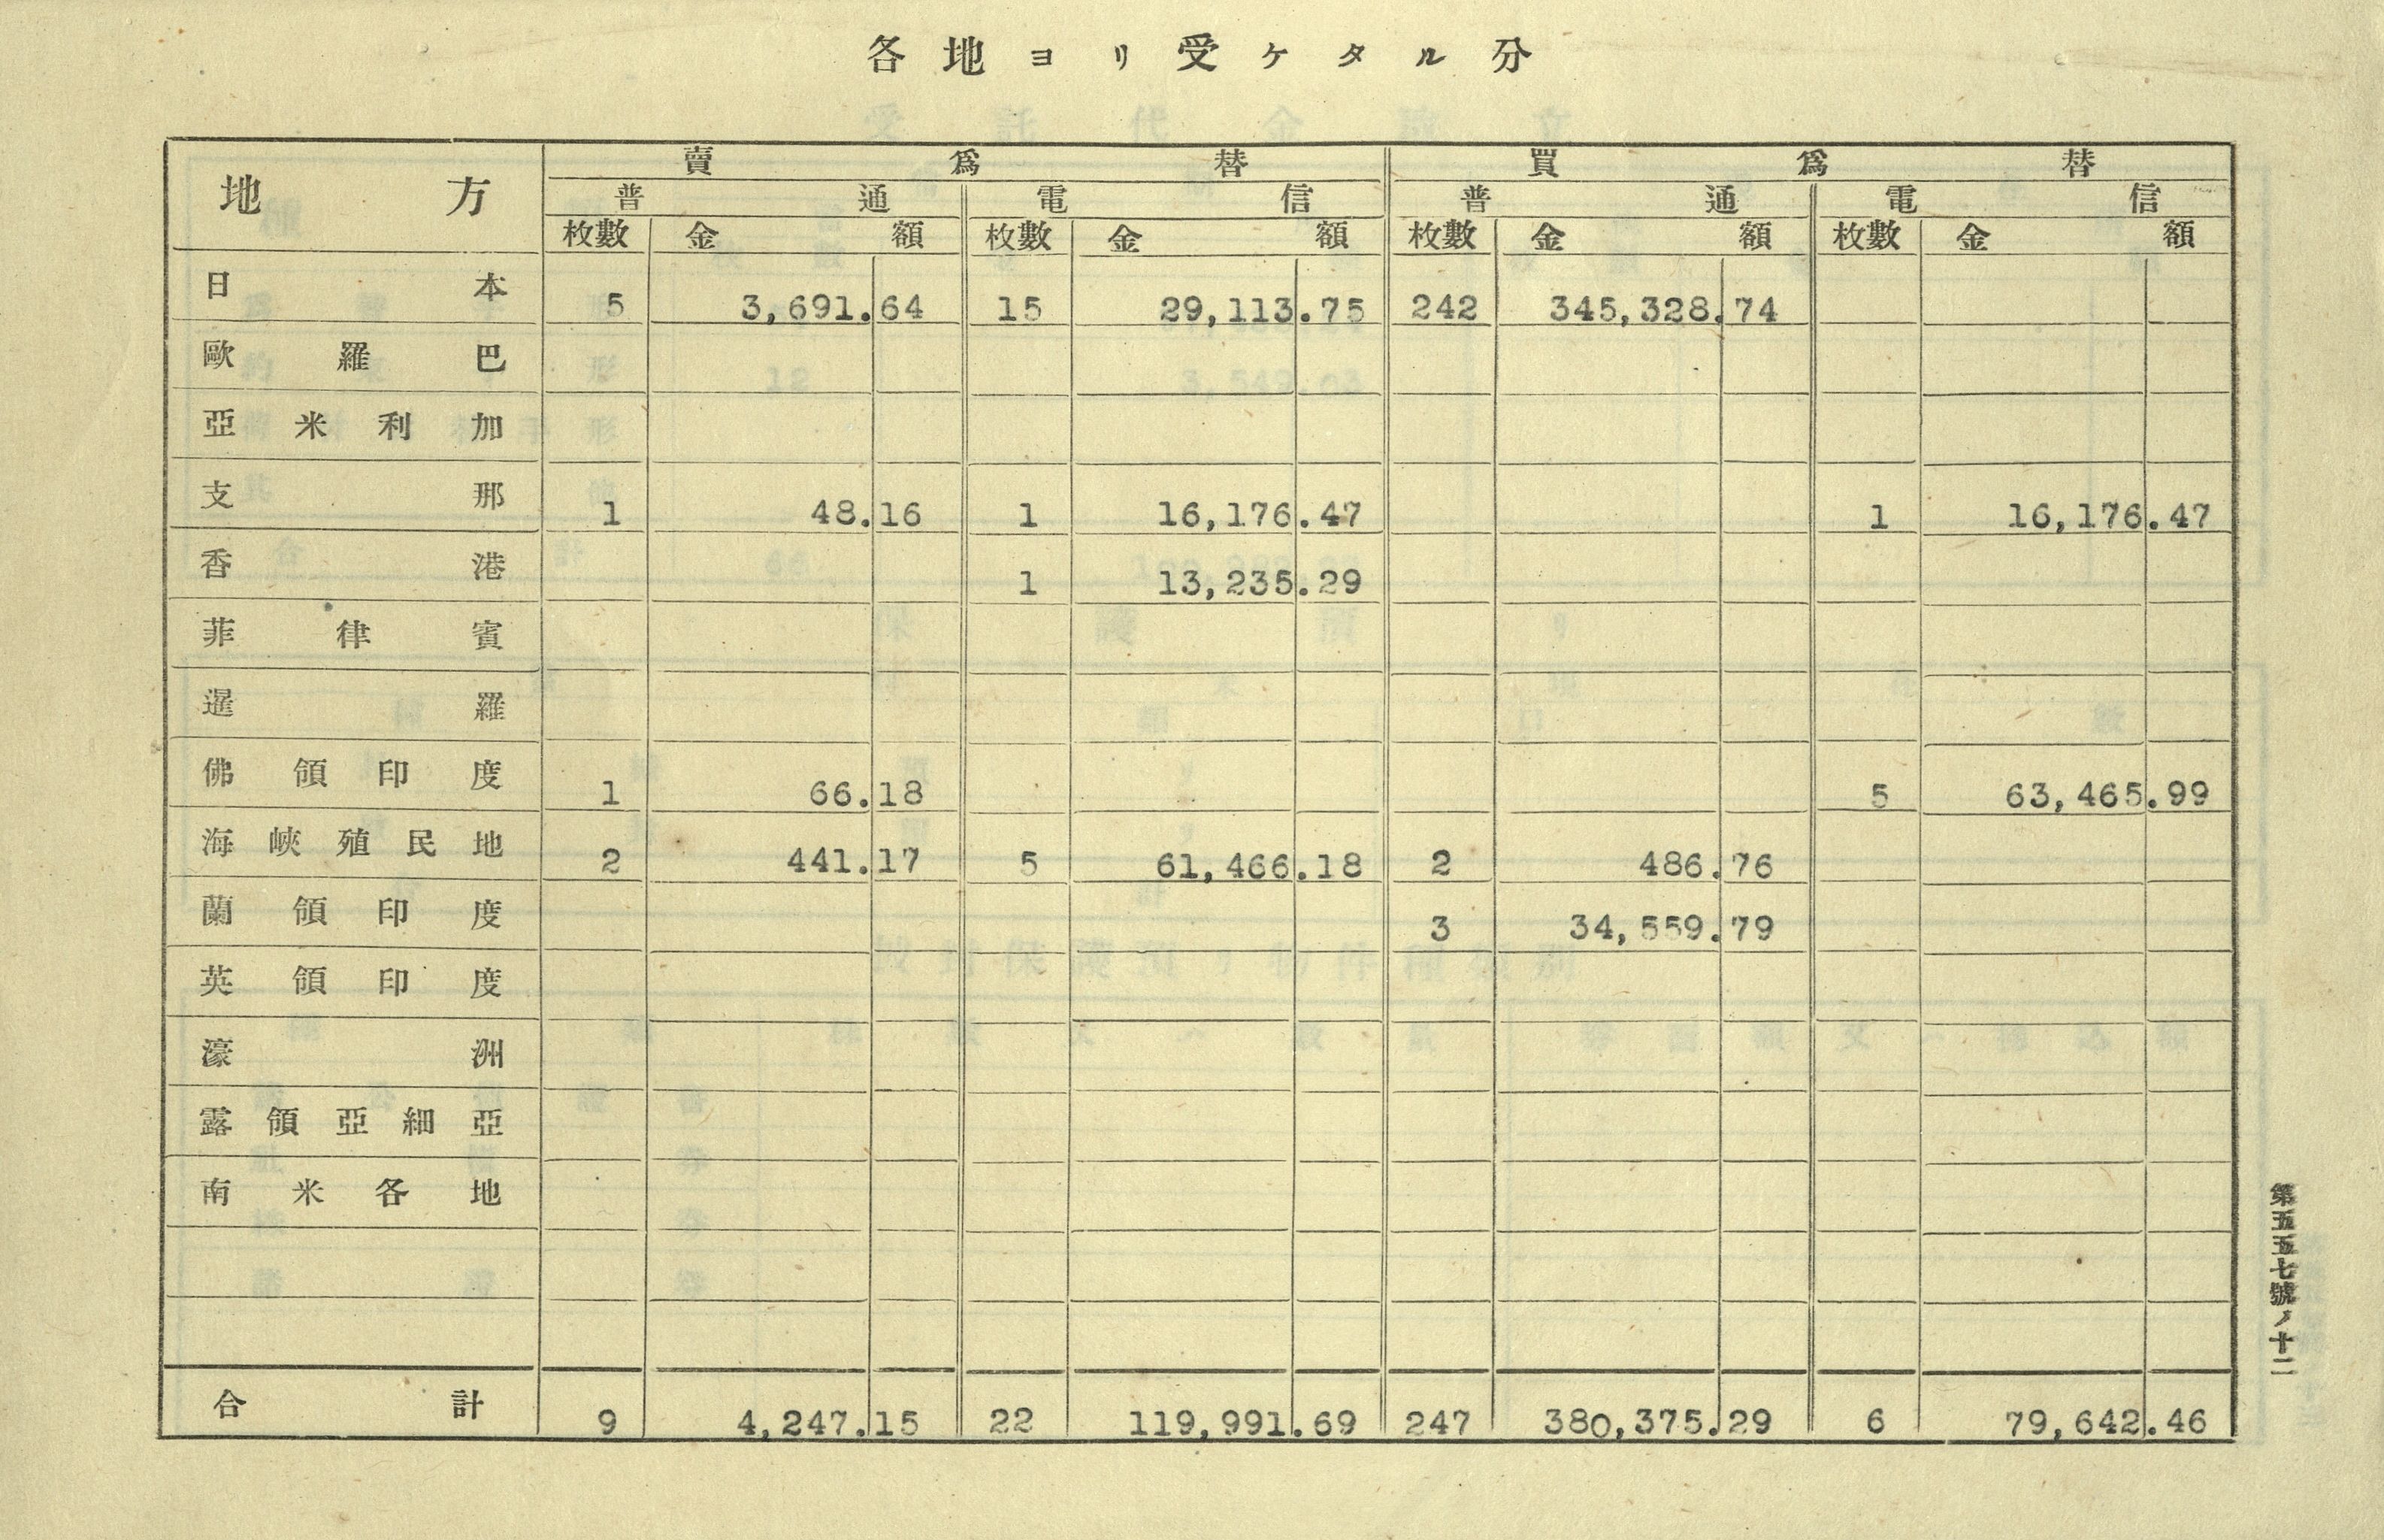 各地ヨリ受ケタル分
地方 賣爲替 買爲替
普通 電信 普通 電信
枚數 金額 枚數 金額 枚數 金額 枚數 金額
日本 5 3,691.64 15 29,113.75 242 345,328.74
歐羅巴
亞米利加
支那 1 48.16 1 16,176.47 1 16,176.47
香港 1 13,235.29
菲律賓
暹羅
佛領印度 1 66.18 5 63,465.99
海峽殖民地 2 441.17 5 61,466.18 2 486.76
蘭領印度 3 34,559.79
英領印度
濠洲
露領亞細亞
南米各地
合計 9 4,247.15 22 119,991.69 247 380,375.29 6 79,642.46
第五五七號ノ十二